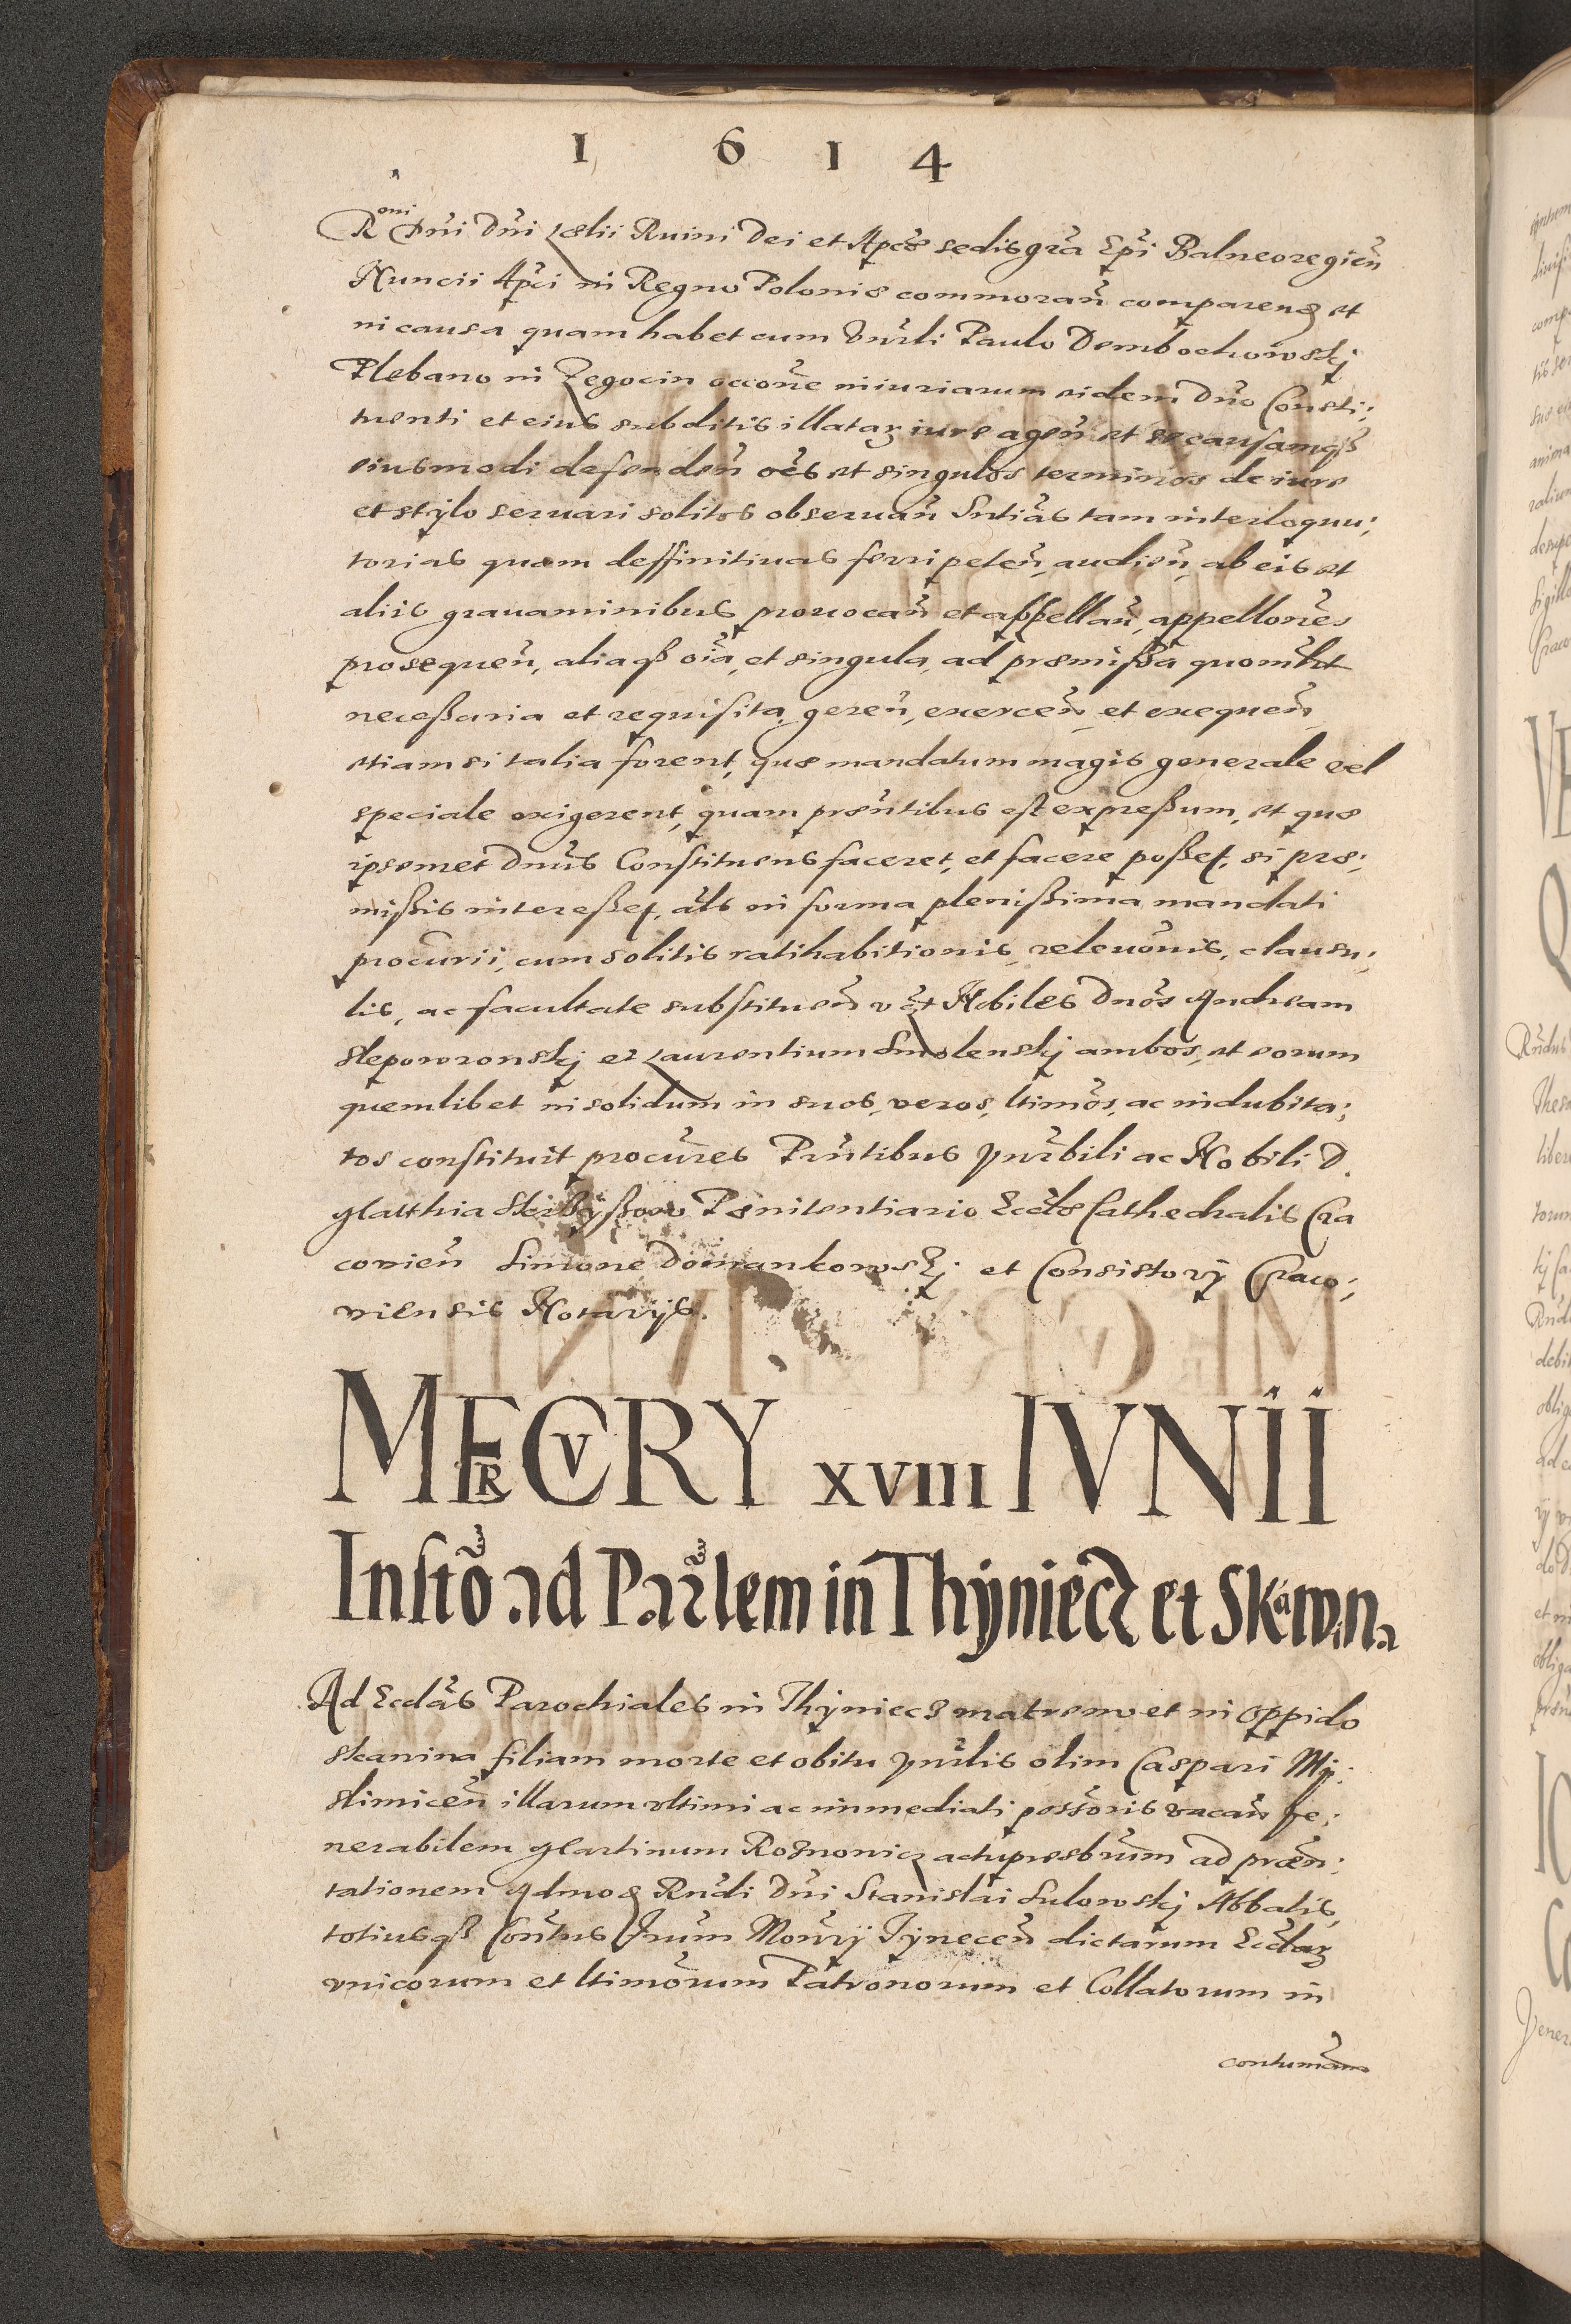 1 6 1 4
R^omi Dni Dni Lælii Ruini Dei et Apcæ sedis gra Epi Balneoregien
Nuncii Apci in Regno Poloniæ commoran comparend et
in causa quam habet cum Vnrli Paulo Dembochowskj
Plebano in Zegocin occone iniuriarum eidem Dno Consti;
tuenti et eius subditis illataꝝ iure agen et se causamqꝫ
eiusmodi defenden oes et singulos terminos de iure
et stylo seruari solitos obseruan Sntias tam interloquu;
torias quam deffinitiuas ferri peten, audien, ab eis et
aliis grauaminibus prouocan et appellan, appellones
prosequen, aliaqꝫ oia, et singula, ad præmißa quomlbt
neceßaria et requisita, geren, exercen, et exequen,
etiam si talia forent, quæ mandatum magis generale vel
speciale exigerent, quam præntibus est expreßum, et quæ
ipsemet Dnus Constituens faceret, et facere poßet, si præ;
mißis intereßet, als in forma plenißima mandati
procurii, cum solitis ratihabitionis, releuonis, clausu;
lis, ac facultate substituen vct Nobiles Dnos Andream
Slepowronskj et Laurentium Smolenskj ambos, et eorum
quemlibet in solidum in suos, veros, ltimos, ac indubita;
tos constituit procures Prntibus Vnrbili ac Nobili D.
Matthia Pænitentiario Ecclæ Cathedralis Cra
couien Simone Domankowskj et Consistorij Craco;
uiensis Notarijs.
MERCVRY XVIII IVNII
Insto ad Parlem in Thÿniecz et Skawina
Ad Ecclas Parochiales in Thyniecz matrem et in oppido
Skawina filiam morte et obitu Vnrlis olim Caspari My;
slimicen illarum vltimi ac immediati possoris vacan Ve;
nerabilem Martinum Roznowicz actu presbrum ad præn;
tationem Admo Rndi Dni Stanislai Sulowskj Abbatis,
totiusqꝫ Contus frum Monrÿ Tynecen dictarum Ecclaꝝ
vnicorum et ltimorum Patronorum et Collatorum in
contumam